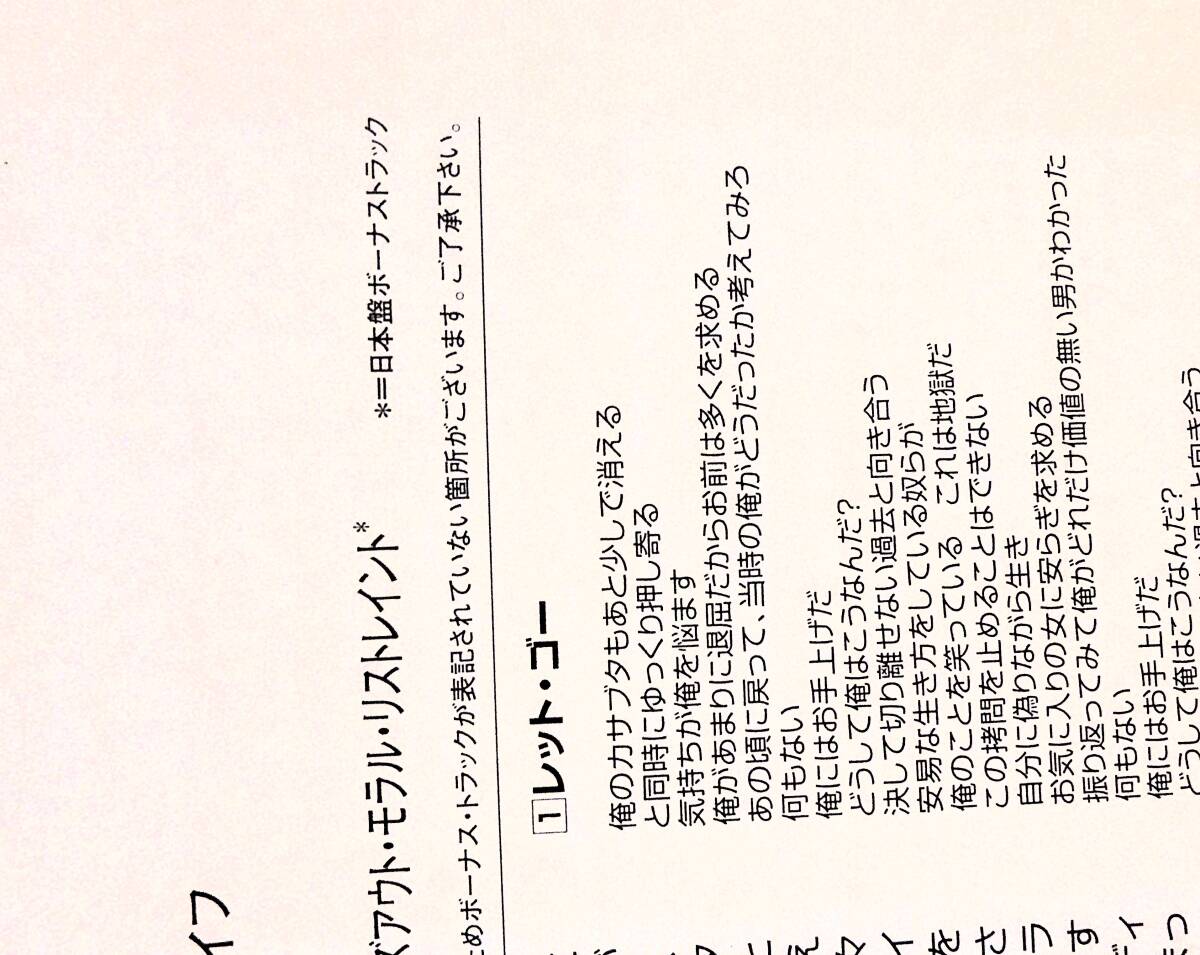 イフ
ズアウト・モラル・リストレイント*
*=日本盤ボーナストラック
ためボーナス・トラックが表記されていない箇所がございます。ご了承下さい。
1 レット・ゴー
俺のカサブタもあと少しで消える
と同時にゆっくり押し寄る
気持ちが俺を悩ます
俺があまりに退屈だからお前は多くを求める
あの頃に戻って、当時の俺がどうだったか考えてみろ
何もない
俺にはお手上げだ
どうして俺はこうなんだ?
決して切り離せない過去と向き合う
安易な生き方をしている奴らが
俺のことを笑っている　これは地獄だ
この拷問を止めることはできない
自分に偽りながら生き
お気に入りの女に安らぎを求める
振り返ってみて俺がどれだけ価値の無い男かわかった
何もない
俺にはお手上げだ
どうして俺はこうなんだ?